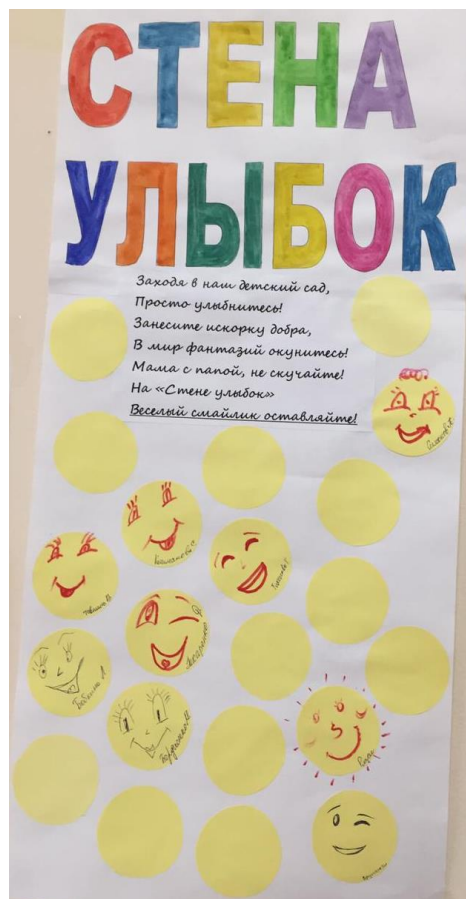 СТЕНА
УЛЫБОК
Заходя в наш детский сад,
Просто улыбнитесь!
Занесите искорку добра,
В мир фантазий окунитесь!
Мама с папой, не скучайте!
На «Стене улыбок»
Веселый смайлик оставляйте!